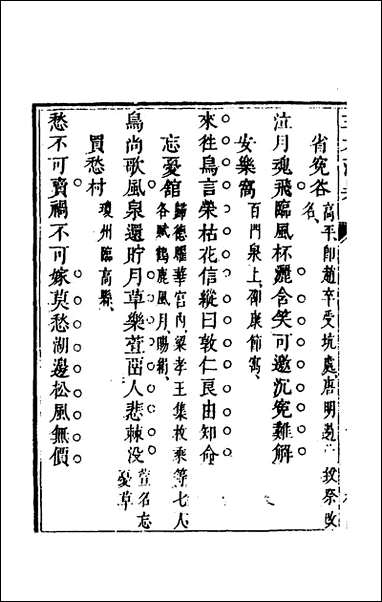 省冤谷 高平即趙卒受坑處唐明過致祭改
名、
泣月魂飛臨風杯灑含笑可邀沉冤難解
安樂窩 百門泉上、邵康節寓、
來往鳥言榮枯花信縱曰敦仁良由知命
忘憂館 歸德曜華宮內、梁孝王集枚乘等七人
各賦鶴鹿風月、賜絹、
鳥尚歌風泉還貯月草樂萱茁人悲棘沒 萱名忘
憂草
買愁村 瓊州臨高縣、
愁不可賣禍不可嫁莫愁湖邊松風無價